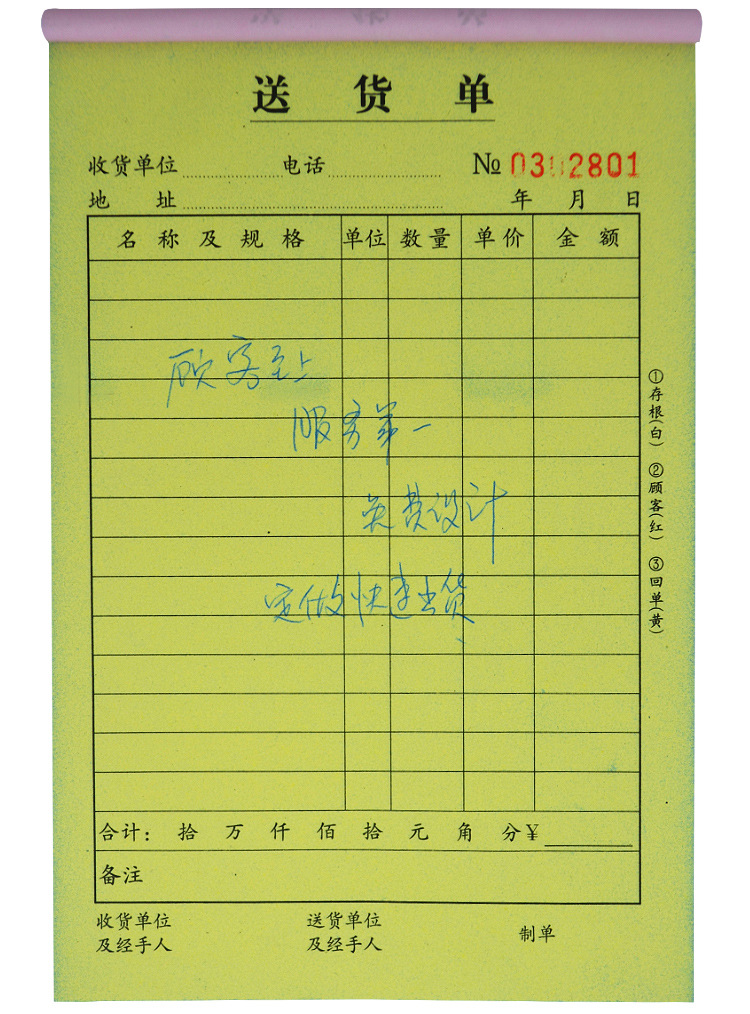 送货单
收货单位 电话 № 0302801
地址 年 月 日
名称及规格 单位 数量 单价 金额
顾客至上
服务第一
免费设计
定做快速出货
①存根(白) ②顾客(红) ③回单(黄)
合计: 拾 万 仟 佰 拾 元 角 分 ¥
备注
收货单位 送货单位
及经手人 及经手人 制单